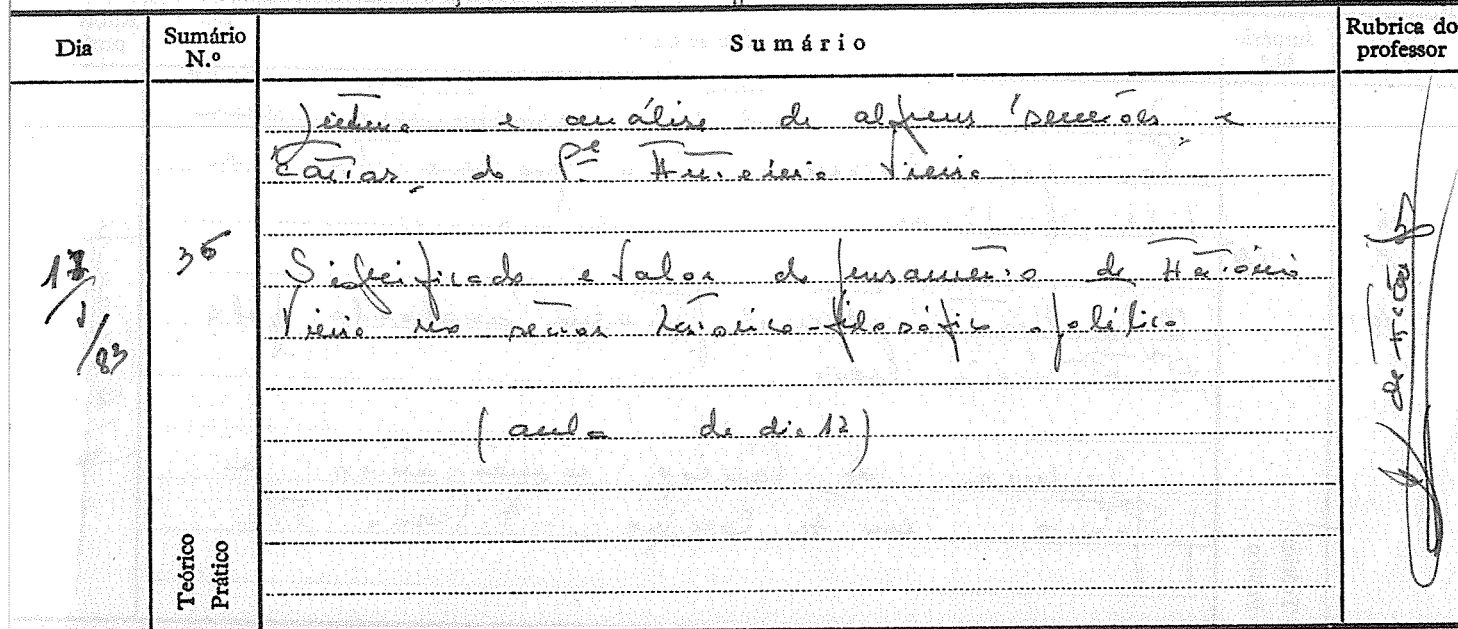 Dia
Sumário N.º
Sumário
Rubrica do professor
17/1/83
36
Leitura e análise de alguns "sermões" e
"Cartas" do P.e António Vieira
Significado e valor do pensamento de António
Vieira nos planos histórico-filosófico e político
(aula do dia 12)
Teórico
Prático